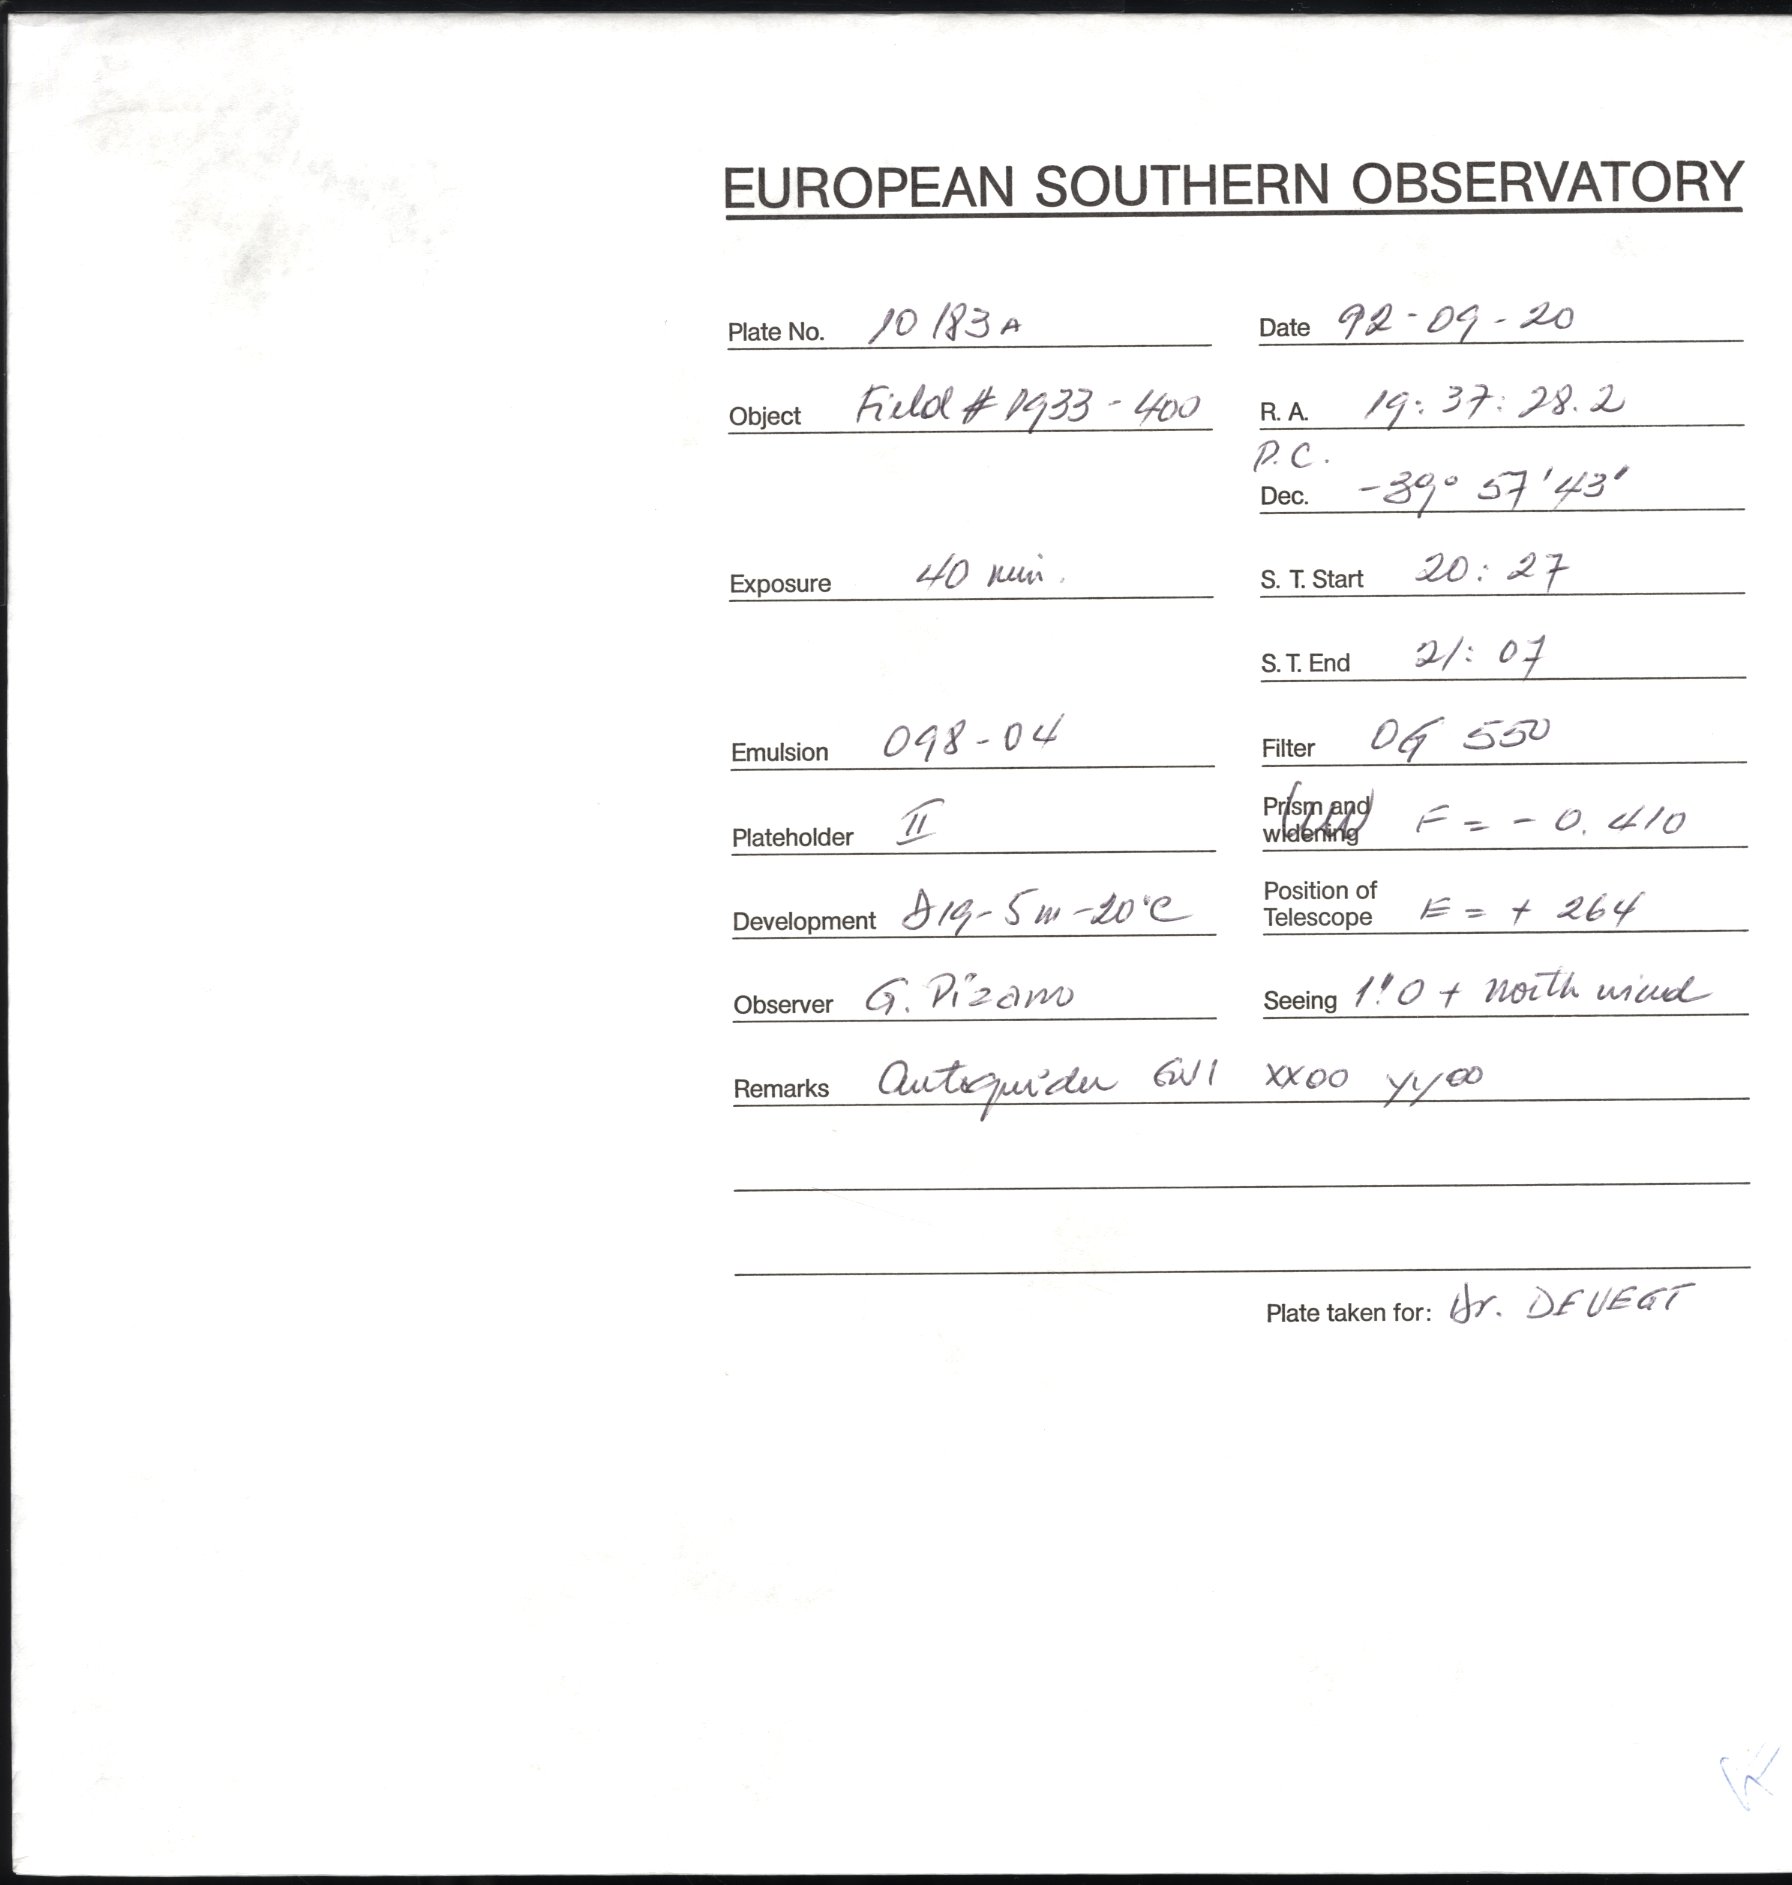 EUROPEAN SOUTHERN OBSERVATORY
Plate No. 10183A Date 92-09-20
Object Field # 1933-400 R. A. 19:37:28.2
P.C.
Dec. -39° 57' 43"
Exposure 40 min. S. T. Start 20:27
S. T. End 21:07
Emulsion 098-04 Filter OG 550
Plateholder II Prism and widening F = - 0.410
Development D19-5m-20°C Position of Telescope E = + 264
Observer G. Pizarro Seeing 1".0 + north wind
Remarks Autoguider GW1 XX00 YY00
Plate taken for: Dr. DEVEGT